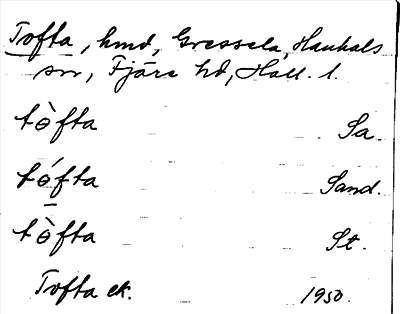 Tofta, hmd, Gressela, Hanhals
sn, Fjäre hd, Hall. l.
tòfta Sa.
tófta Sand.
tò̱fta St.
Tofta ek. 1950.